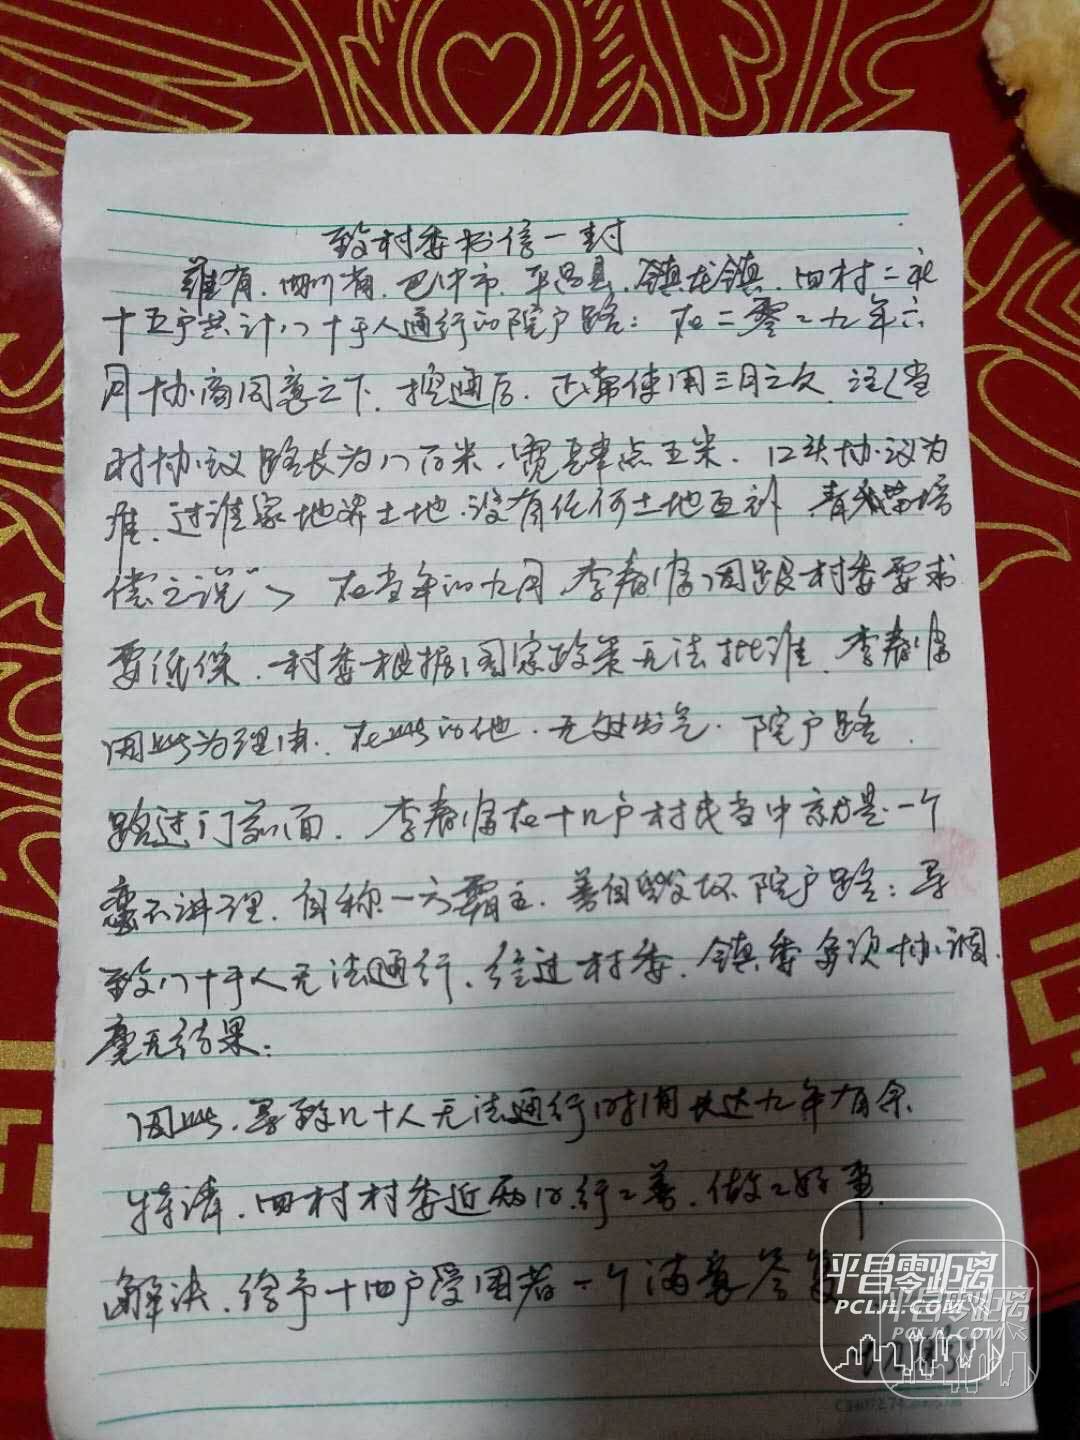 致村委书信一封
兹有.四川省.巴中市.平昌县.镇龙镇.四村二社
十五户共计八十于人通行的院户路：在二零零九年六
月协商同意之下.挖通后.正常使用三月之久.注＜当
时协议路长为八百米.宽肆点五米.口头协议为
准.过谁家地界土地.没有任何土地互补
偿之说＞在当年的九月.李春 因跟村委要求
要低保.村委根据国家政策无法批准.李春
因此为理由.在此的他.无处出气.院户路.
路过门前面.李春 在十几户村民当中就是一个
蛮不讲理.自称一方霸主.善自毁坏院户路：导
致八十于人无法通行.经过村委.镇委多次协调.
毫无结果：
因此.导致几十人无法通行时间长达九年有余.
特请.四村村委近两日.行行善.做做好事.
解决.给予十四户受困者一个满意答复
平昌零距离
PCLJL.COM
平昌零距离
PCLJL.COM